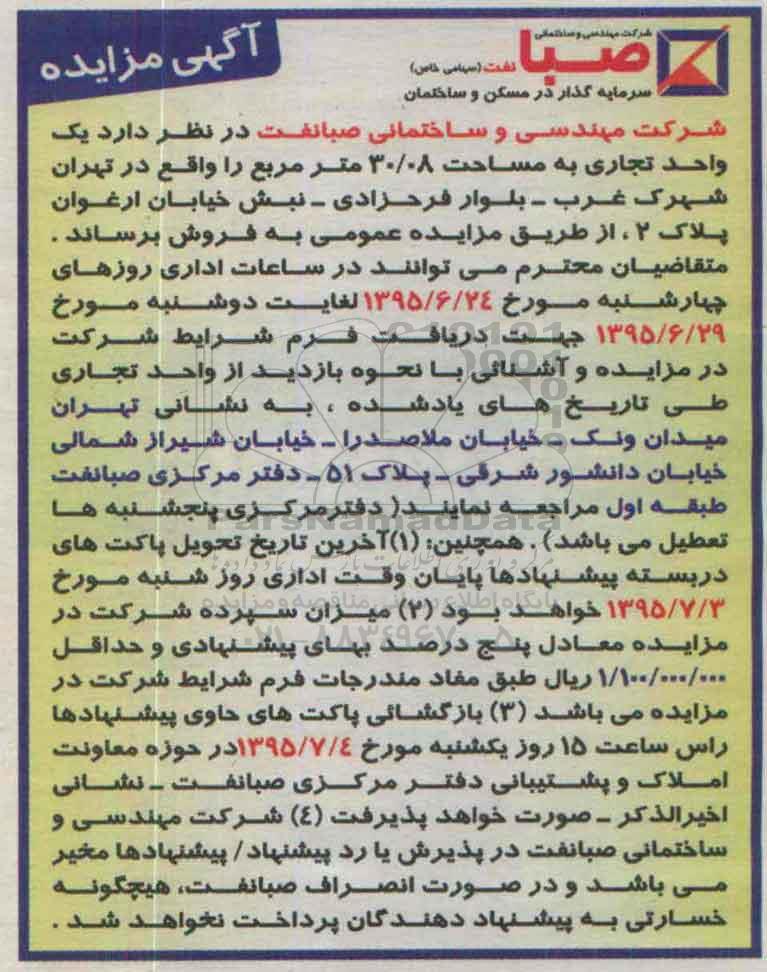 آگهی مزایده
شرکت مهندسی و ساختمانی
صبا نفت (سهامی خاص)
سرمایه گذار در مسکن و ساختمان
شرکت مهندسی و ساختمانی صبانفت در نظر دارد یک
واحد تجاری به مساحت ۳۰/۰۸ متر مربع را واقع در تهران
شهرک غرب ـ بلوار فرحزادی ـ نبش خیابان ارغوان
پلاک ۲ ، از طریق مزایده عمومی به فروش برساند .
متقاضیان محترم می توانند در ساعات اداری روزهای
چهارشنبه مورخ ۱۳۹۵/۶/۲٤ لغایت دوشنبه مورخ
۱۳۹۵/۶/۲۹ جهت دریافت فرم شرایط شرکت
در مزایده و آشنائی با نحوه بازدید از واحد تجاری
طی تاریخ های یادشده ، به نشانی تهران
میدان ونک ـ خیابان ملاصدرا ـ خیابان شیراز شمالی
خیابان دانشور شرقی ـ پلاک ۵۱ ـ دفتر مرکزی صبانفت
طبقه اول مراجعه نمایند( دفترمرکزی پنجشنبه ها
تعطیل می باشد) . همچنین: (۱)آخرین تاریخ تحویل پاکت های
دربسته پیشنهادها پایان وقت اداری روز شنبه مورخ
۱۳۹۵/۷/۳ خواهد بود (۲) میزان سپرده شرکت در
مزایده معادل پنج درصد بهای پیشنهادی و حداقل
۱/۱۰۰/۰۰۰/۰۰۰ ریال طبق مفاد مندرجات فرم شرایط شرکت در
مزایده می باشد (۳) بازگشائی پاکت های حاوی پیشنهادها
راس ساعت ۱۵ روز یکشنبه مورخ ۱۳۹۵/۷/٤در حوزه معاونت
املاک و پشتیبانی دفتر مرکزی صبانفت ـ نشانی
اخیرالذکر ـ صورت خواهد پذیرفت (٤) شرکت مهندسی و
ساختمانی صبانفت در پذیرش یا رد پیشنهاد/ پیشنهادها مخیر
می باشد و در صورت انصراف صبانفت، هیچگونه
خسارتی به پیشنهاد دهندگان پرداخت نخواهد شد .
ParsNamadData
پایگاه اطلاع رسانی مناقصه و مزایده
۰۲۱-۸۸۳٤۹۶۷۰-۵